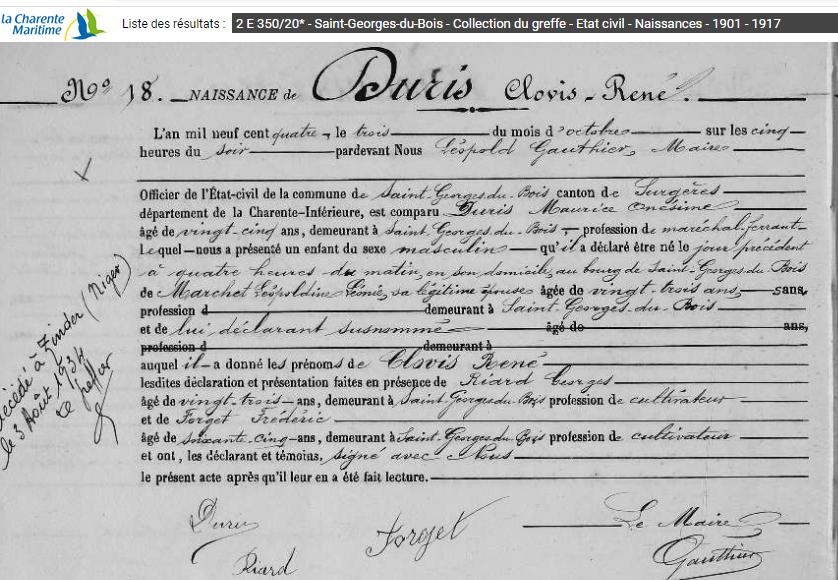 la Charente
Maritime
Liste des résultats :
2 E 350/20* - Saint-Georges-du-Bois - Collection du greffe - Etat civil - Naissances - 1901 - 1917
Nº 18. NAISSANCE de Duris Clovis-René.
L'an mil neuf cent quatre, le trois du mois d'octobre sur les cinq
heures du soir pardevant Nous Léopold Gauthier, Maire
Officier de l'État-civil de la commune de Saint-Georges-du-Bois canton de Surgères
département de la Charente-Inférieure, est comparu Duris Maurice Onésime
âgé de vingt-cinq ans, demeurant à Saint-Georges-du-Bois, profession de maréchal-ferrant
Lequel nous a présenté un enfant du sexe masculin qu'il a déclaré être né le jour précédent
à quatre heures du matin, en son domicile, au bourg de Saint-Georges-du-Bois
de Marchet Léopoldine Léonie, sa légitime épouse âgée de vingt-trois ans, sans
profession d demeurant à Saint-Georges-du-Bois
et de lui déclarant susnommé âgé de ans,
profession d demeurant à
auquel il a donné les prénoms de Clovis René
lesdites déclaration et présentation faites en présence de Riard Georges
âgé de vingt-trois ans, demeurant à Saint-Georges-du-Bois profession de cultivateur
et de Forget Frédéric
âgé de soixante-cinq ans, demeurant à Saint-Georges-du-Bois profession de cultivateur
et ont, les déclarant et témoins, signé avec Nous
le présent acte après qu'il leur en a été fait lecture.
Décédé à Zinder (Niger)
le 3 Août 1934
Le greffier
Duris
Riard
Forget
Le Maire
Gauthier